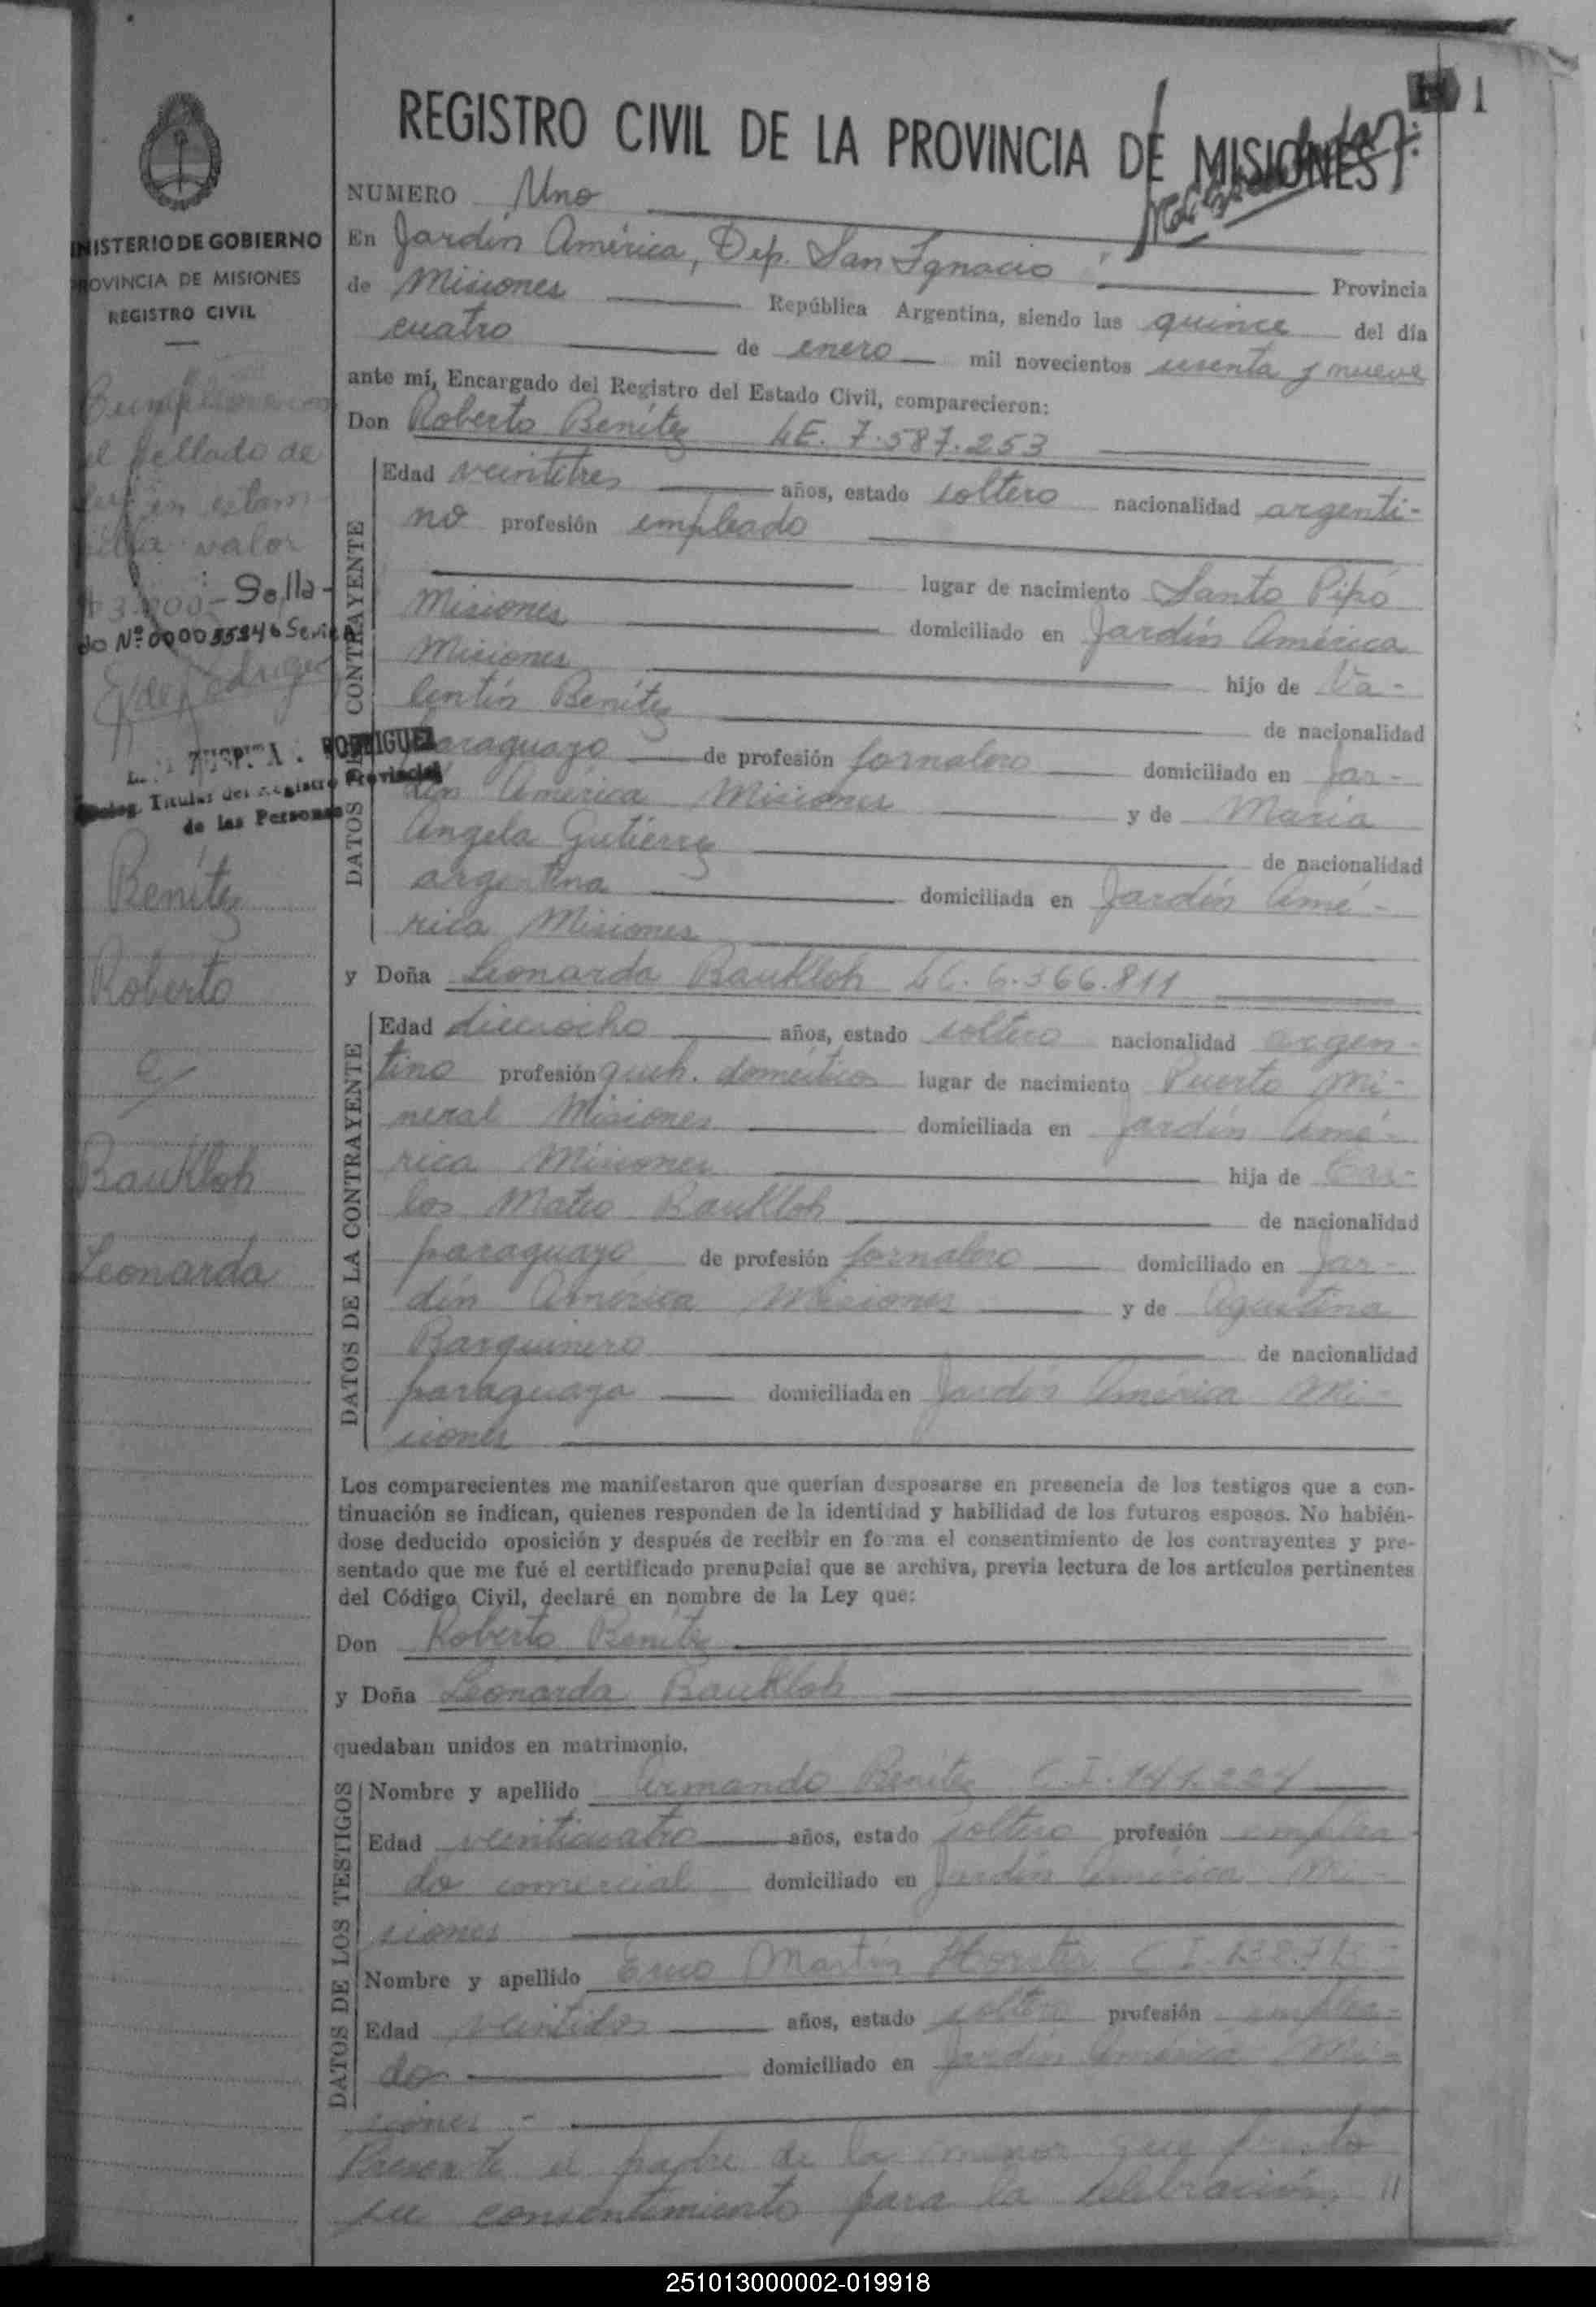 1
REGISTRO CIVIL DE LA PROVINCIA DE MISIONES
NUMERO Uno
En Jardín América, Dep. San Ignacio Provincia
de Misiones República Argentina, siendo las quince del día
cuatro de enero mil novecientos sesenta y nueve
ante mí, Encargado del Registro del Estado Civil, comparecieron:
Don Roberto Benítez LE. 7.587.253
DATOS CONTRAYENTE
Edad veintitres años, estado soltero nacionalidad argenti-
no profesión empleado
lugar de nacimiento Santo Pipó
Misiones domiciliado en Jardín América
Misiones hijo de Va-
lentín Benítez de nacionalidad
paraguayo de profesión jornalero domiciliado en Jar-
dín América Misiones y de María
Angela Gutiérrez de nacionalidad
argentina domiciliada en Jardín Amé-
rica Misiones
y Doña Leonarda Baukloh LC. 6.366.811
DATOS DE LA CONTRAYENTE
Edad dieciocho años, estado soltera nacionalidad argen-
tina profesión queh. domésticos lugar de nacimiento Puerto Mi-
neral Misiones domiciliada en Jardín Amé-
rica Misiones hija de Car-
los Mateo Baukloh de nacionalidad
paraguayo de profesión jornalero domiciliado en Jar-
dín América Misiones y de Agustina
Barquinero de nacionalidad
paraguaya domiciliada en Jardín América Mi-
siones
Los comparecientes me manifestaron que querían desposarse en presencia de los testigos que a con-
tinuación se indican, quienes responden de la identidad y habilidad de los futuros esposos. No habién-
dose deducido oposición y después de recibir en forma el consentimiento de los contrayentes y pre-
sentado que me fué el certificado prenupcial que se archiva, previa lectura de los artículos pertinentes
del Código Civil, declaré en nombre de la Ley que:
Don Roberto Benítez
y Doña Leonarda Baukloh
quedaban unidos en matrimonio.
DATOS DE LOS TESTIGOS
Nombre y apellido Armando Benítez C.I. 141.224
Edad veinticuatro años, estado soltero profesión emplea-
do comercial domiciliado en Jardín América Mi-
siones
Nombre y apellido Martín C.I.
Edad veintidos años, estado soltero profesión emplea-
do domiciliado en Jardín América Mi-
siones.-
Presente el padre de la menor que prestó
su consentimiento para la celebración. //
MINISTERIO DE GOBIERNO
PROVINCIA DE MISIONES
REGISTRO CIVIL
el sellado de
ley en estam-
pilla valor
$ 3.000.- Sella-
do Nº 000055846 Serie
RODRIGUEZ
Titular del Registro Provincial
de las Personas
Benítez
Roberto
c/
Baukloh
Leonarda
251013000002-019918